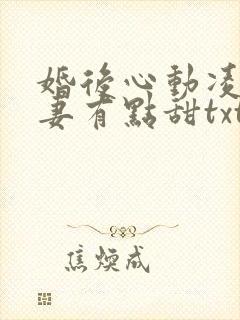 婚後心動凌
妻有點甜txt
焦煥成